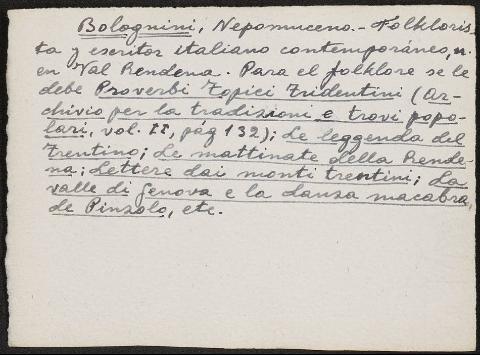 Bolognini, Nepomuceno.- Folkloris-
ta y escritor italiano contemporáneo, n.
en Val Rendena. Para el folklore se le
debe Proverbi Topici Tridentini (Ar-
chivio per la tradizioni e trovi popo-
lari, vol. II, pág 132); Le leggenda del
Trentino; Le mattinate della Rende-
na; Lettere dai monti trentini; La
valle di Genova e la danza macabra
de Pinzolo, etc.